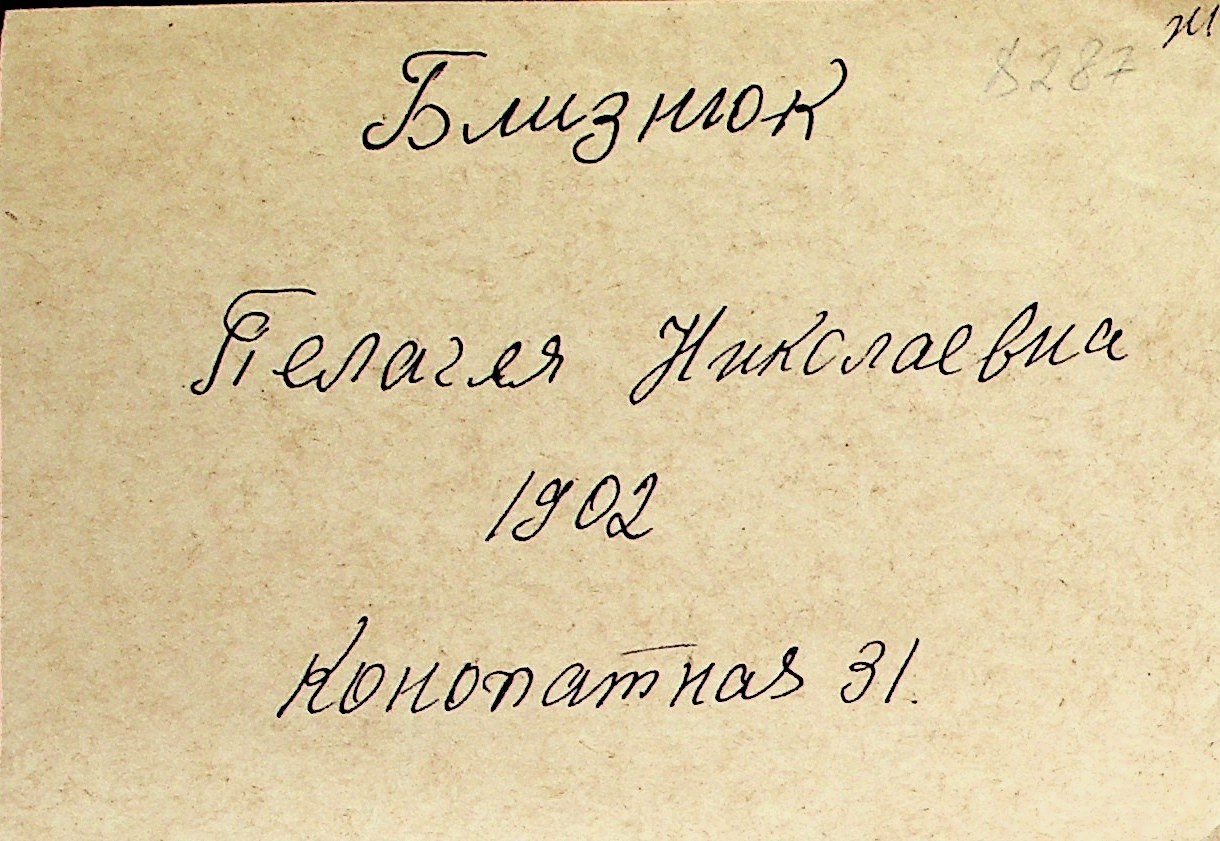 8287
Близнюк
Пелагея Николаевна
1902
Конопатная 31.